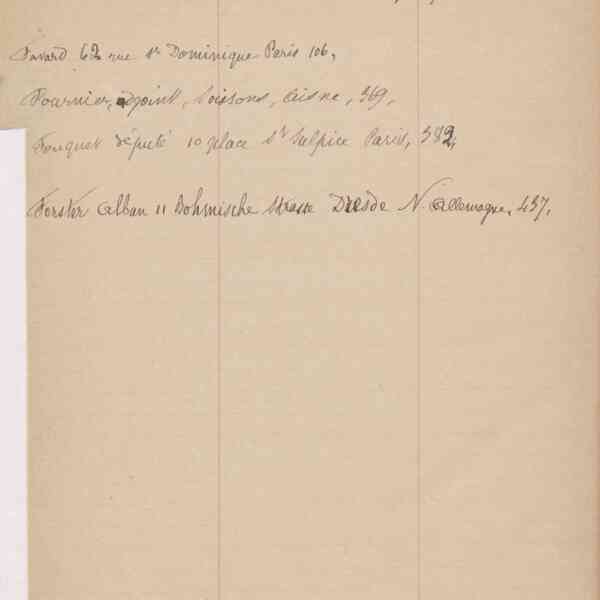 Favard 62 rue St Dominique Paris 106,
Fournier, adjoint, Soissons, Aisne, 369,
Fouquet député 10 place St Sulpice Paris, 382,
Forster Alban 11 Bohmische Strasse Dresde N. Allemagne, 437,